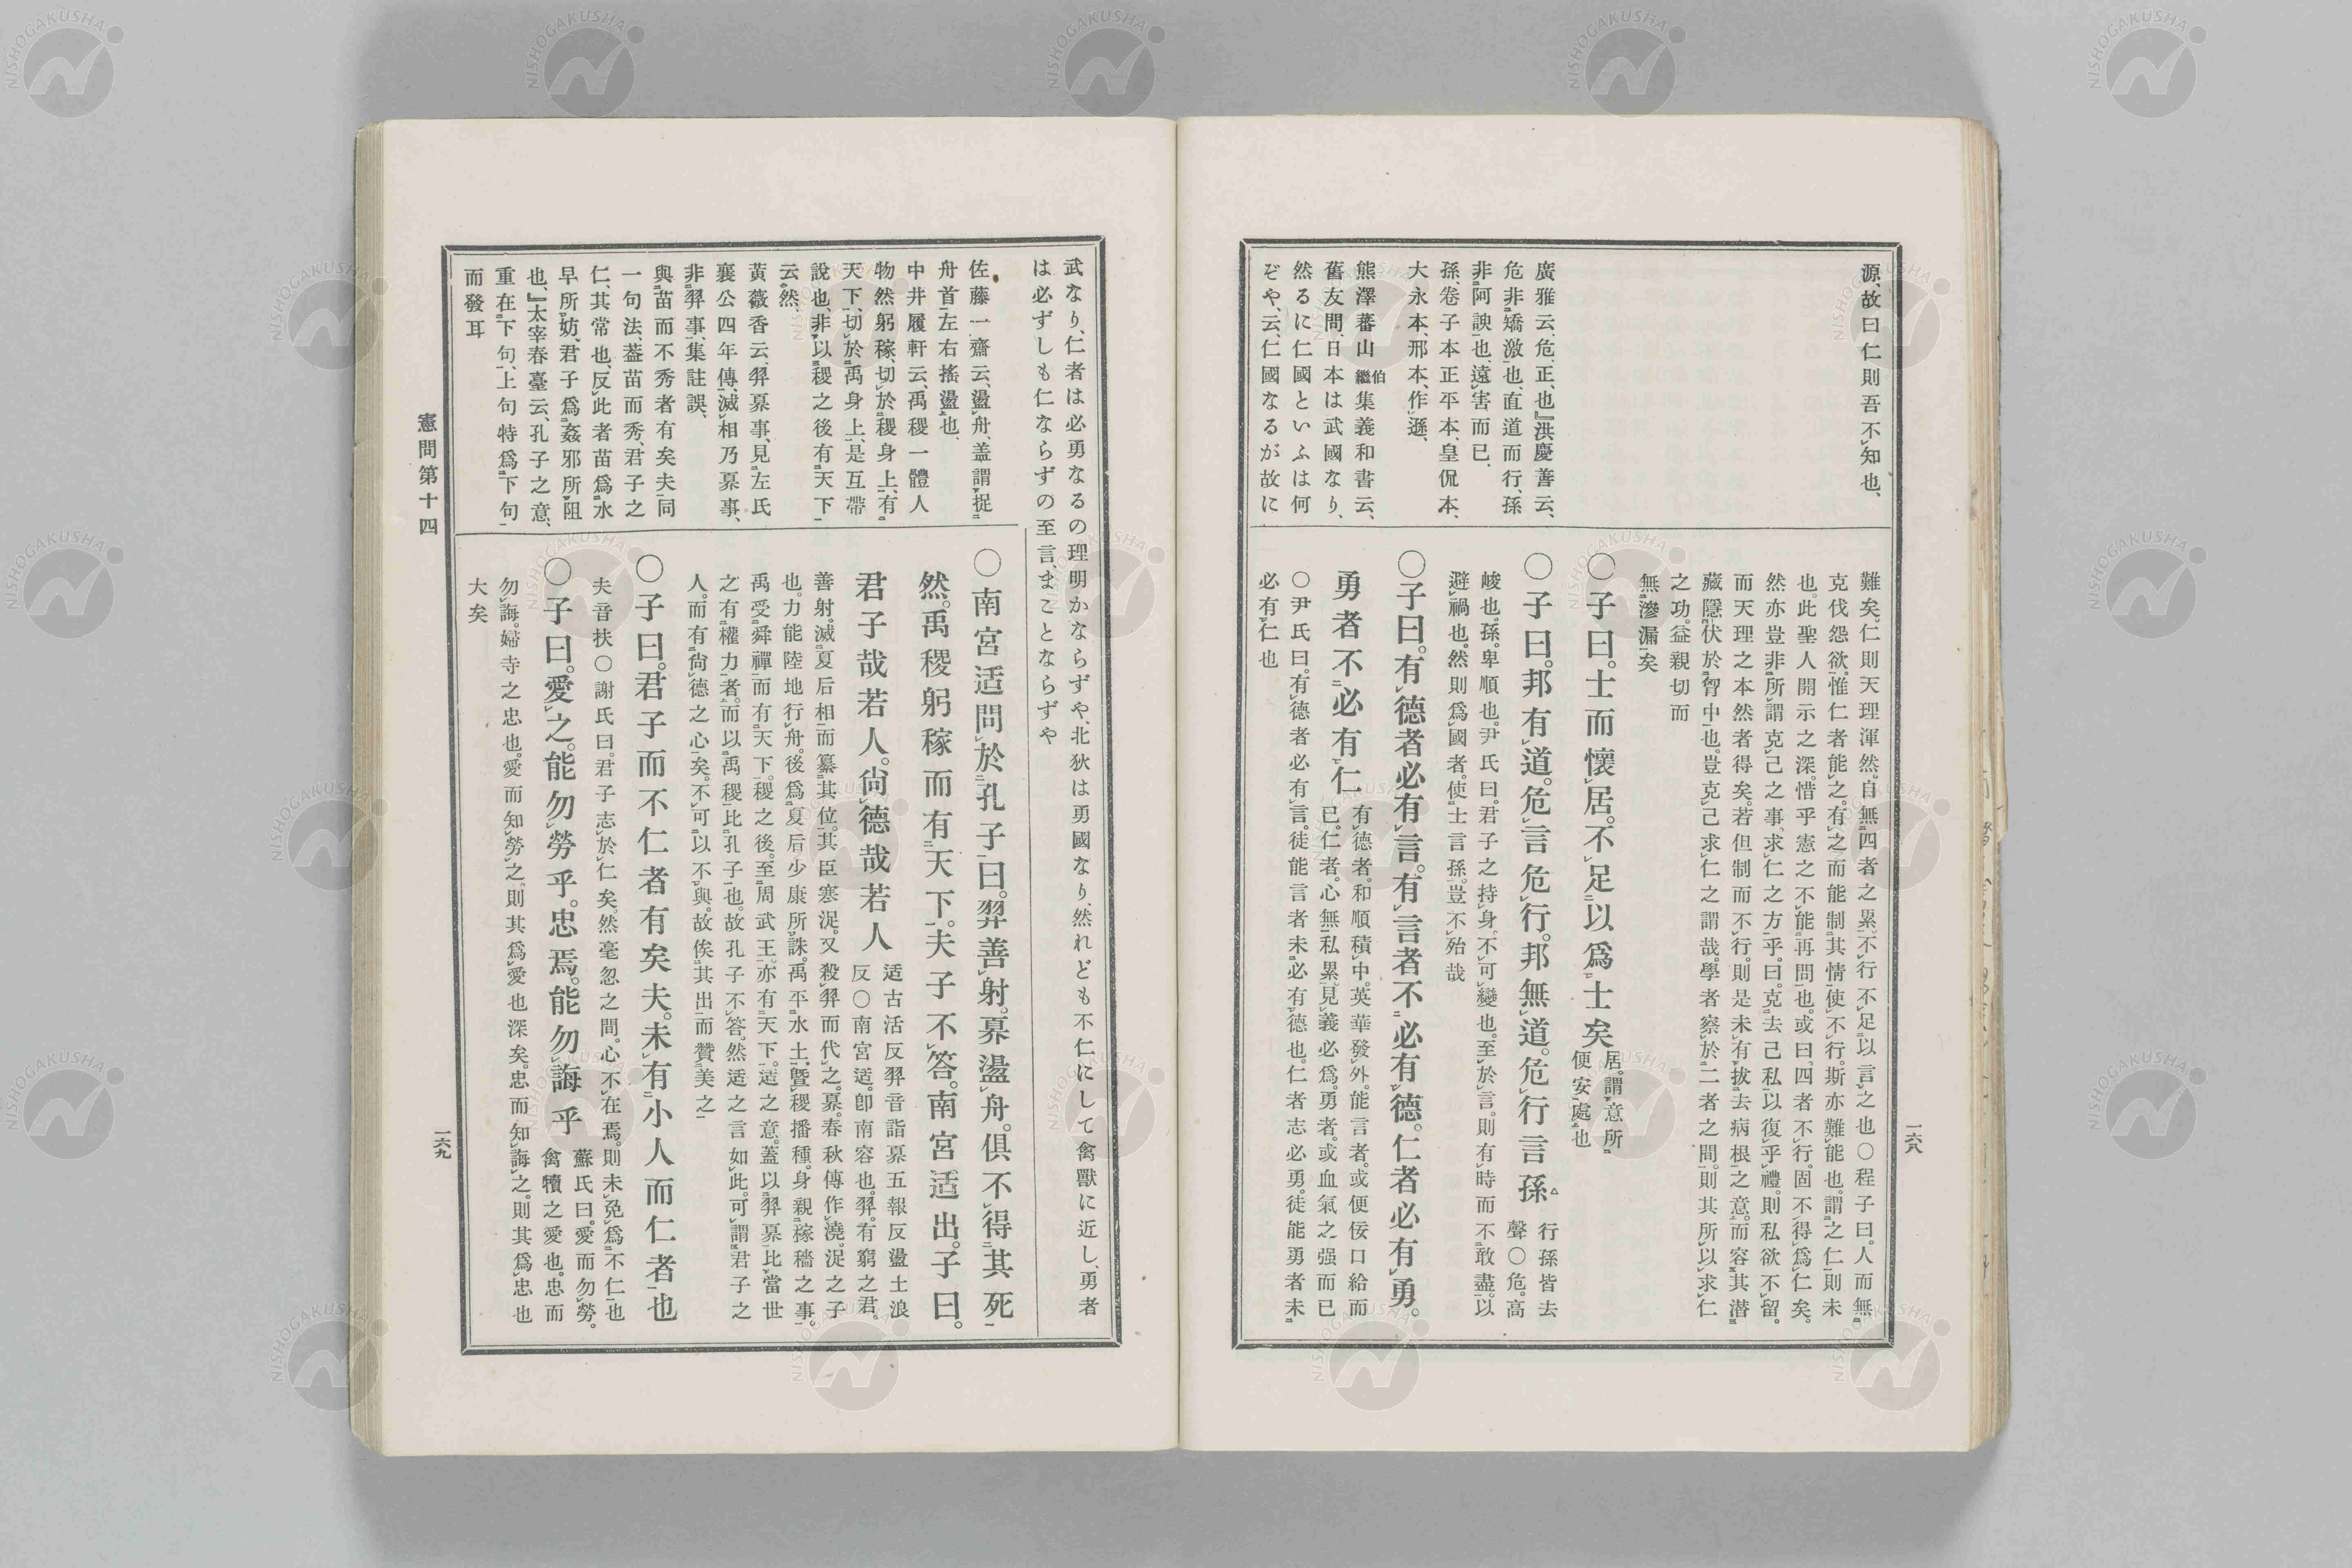 源、故曰仁則吾不ㇾ知也、
廣雅云、危、正、也』洪慶善云、
危非矯激也、直道而行、孫
非阿諛也、遠ㇾ害而已、
孫、卷子本正平本、皇侃本、
大永本、邢本、作ㇾ遜、
熊澤蕃山繼伯集義和書云、
舊友問、日本は武國なり、
然るに仁國といふは何
ぞや、云、仁國なるが故に
難矣。仁則天理渾然。自無四者之累。不行不足以言之也〇程子曰。人而無
克伐怨欲。惟仁者能之。有之而能制其情使不行。斯亦難能也。謂之仁則未
也。此聖人開示之深。惜乎憲之不能再問也。或曰。四者不行。固不得爲仁矣。
然亦豈非所謂克己之事。求仁之方乎。曰。克去己私以復乎禮。則私欲不留。
而天理之本然者得矣。若但制而不行。則是未有拔去病根之意。而容其潛
藏隱伏於胷中也。豈克己求仁之謂哉。學者察於二者之間。則其所以求仁
之功。益親切而
無滲漏矣
〇子曰。士而懷居。不足以爲士矣
居。謂意所
便安處也
〇子曰。邦有道。危言危行。邦無道。危行言孫
行孫皆去
聲〇危。高
峻也。孫。卑順也。尹氏曰。君子之持身。不可變也。至於言。則有時而不敢盡。以
避禍也。然則爲國者。使士言孫。豈不殆哉
〇子曰。有德者必有言。有言者不必有德。仁者必有勇。
勇者不必有仁
有德者。和順積中。英華發外。能言者。或便佞口給而
已。仁者。心無私累。見義必爲。勇者。或血氣之强而已
〇尹氏曰。有德者必有言。徒能言者未必有德也。仁者志必勇。徒能勇者未
必有仁也
一六八
武なり、仁者は必勇なるの理明かならずや、北狄は勇國なり、然れども不仁にして禽獸に近し、勇者
は必ずしも仁ならずの至言、まことならずや
佐藤一齋云、盪ㇾ舟、盖謂捉
舟首左右搖盪也、
中井履軒云、禹稷一體人
物然躬稼、切於稷身上、有
天下、切於禹身上、是互帶
說也、非以稷之後有天下
云然、
黃薇香云、羿奡事、見左氏
襄公四年傳、滅相乃奡事、
非羿事、集註誤、
與苗而不秀者有矣夫同
一句法、葢苗而秀、君子之
仁、其常也、反此者苗爲水
旱所妨、君子爲姦邪所阻
也、』太宰春臺云、孔子之意、
重在下句、上句特爲下句
而發耳
〇南宮适問於孔子曰。羿善射。奡盪舟。俱不得其死
然。禹稷躬稼而有天下。夫子不答。南宮适出。子曰。
君子哉若人。尙德哉若人
适古活反羿音詣奡五報反盪土浪
反〇南宮适。卽南容也。羿。有窮之君。
善射。滅夏后相而簒其位。其臣寒浞。又殺羿而代之。奡。春秋傳作澆。浞之子
也。力能陸地行舟。後爲夏后少康所誅。禹平水土。曁稷播種。身親稼穡之事。
禹受舜禪而有天下。稷之後。至周武王。亦有天下。适之意。蓋以羿奡比當世
之有權力者。而以禹稷比孔子也。故孔子不答。然适之言如此。可謂君子之
人。而有尙德之心矣。不可以不與。故俟其出而贊美之
〇子曰。君子而不仁者有矣夫。未有小人而仁者也
夫音扶〇謝氏曰。君子志於仁矣然毫忽之間。心不在焉。則未免爲不仁也
〇子曰。愛之。能勿勞乎。忠焉。能勿誨乎
蘇氏曰。愛而勿勞。
禽犢之愛也。忠而
勿誨。婦寺之忠也。愛而知勞之。則其爲愛也深矣。忠而知誨之。則其爲忠也
大矣
憲問第十四
一六九